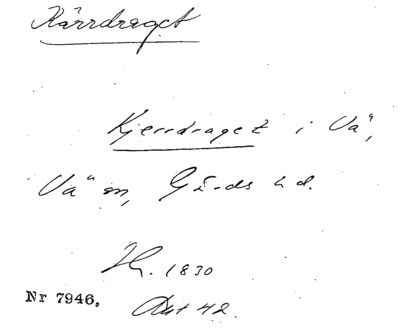 Kärrdraget
Kjerrdraget i Vä,
Vä sn, Gärds hd.
1830
Nr 7946. Akt 42.